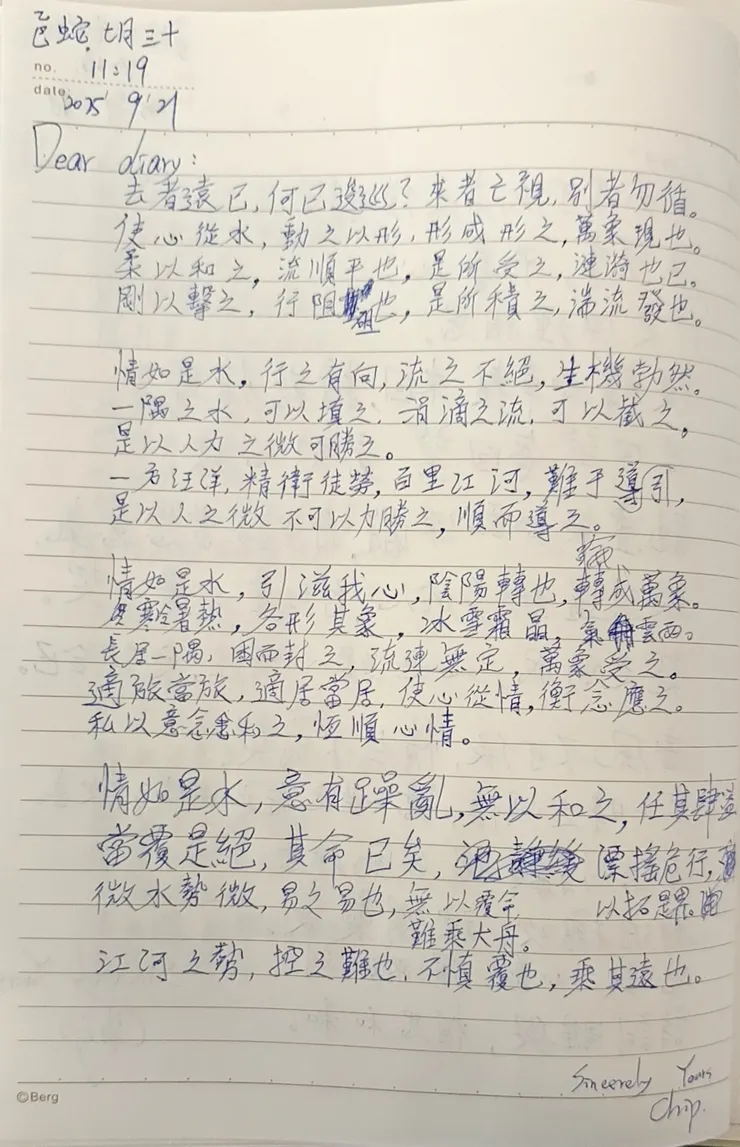 乙蛇 七月三十
no. 11:19
date 2025 9 21
Dear diary:
去者遠已,何已逡巡?來者亡視,別者勿循。
使心從水,動之以形,形成形之,萬象現也。
柔以和之,流順平也,是所受之,漣漪也已。
剛以擊之,行阻也,是所積之,湍流發也。
情如是水,行之有向,流之不絕,生機勃然。
一隅之水,可以填之,涓滴之流,可以截之,
是以人力之微可勝之。
一方汪洋,精衛徒勞,百里江河,難于導引,
是以人之微不可以力勝之,順而導之。
情如是水,引滋我心,陰陽轉也,轉成萬象。
冬寒暑熱,各形其象,冰雪霜晶,氣雲雨。
長居一隅,困而封之,流連無定,萬象受之。
適旅當旅,適居當居,使心從情,衡念應之。
私以意念和之,恆順心情。
情如是水,意有躁亂,無以和之,任其肆溢
當覆是絕,其命已矣,漂搖危行,
微水勢微,易之易也,無以覆傘 以拓是界。
難乘大丹。
江河之勢,控之難也,不慎覆也,乘其遠也。
Sincerely Yours
Chip.
©Berg